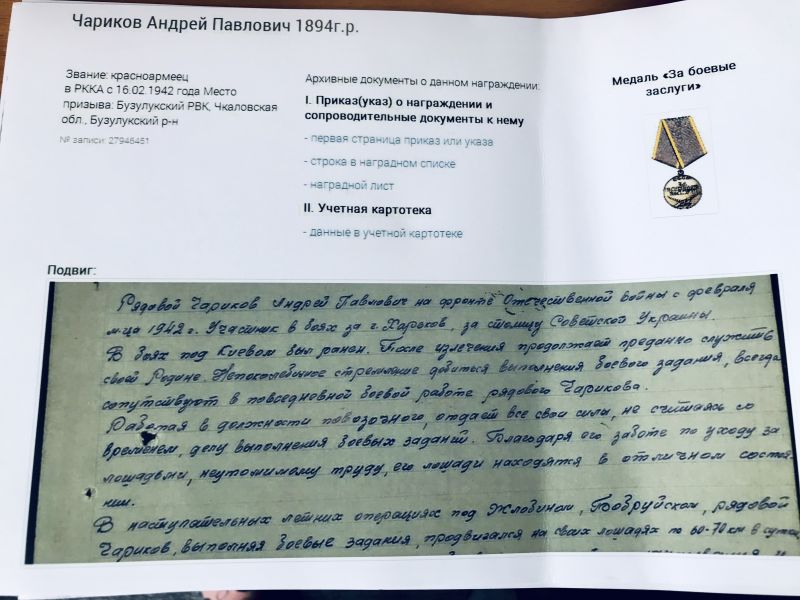 Чариков Андрей Павлович 1894г.р.
Звание: красноармеец
в РККА с 16.02.1942 года Место
призыва: Бузулукский РВК, Чкаловская
обл., Бузулукский р-н
№ записи: 27946451
Архивные документы о данном награждении:
I. Приказ(указ) о награждении и
сопроводительные документы к нему
- первая страница приказ или указа
- строка в наградном списке
- наградной лист
II. Учетная картотека
- данные в учетной картотеке
Медаль «За боевые
заслуги»
Подвиг:
Рядовой Чариков Андрей Павлович на фронте Отечественной войны с февраля
м-ца 1942 г. Участник в боях за г. Харьков, за столицу Советской Украины.
В боях под Киевом был ранен. После излечения продолжает преданно служить
своей Родине. Непоколебимое стремление добиться выполнения боевого задания, всегда
сопутствуют в повседневной боевой работе рядового Чарикова.
Работая в должности повозочного, отдает все свои силы, не считаясь со
временем, делу выполнения боевых заданий. Благодаря его заботе по уходу за
лошадьми, неутомимому труду, его лошади находятся в отличном состоя-
нии.
В наступательных летних операциях под Жлобином, Бобруйском, рядовой
Чариков, выполняя боевые задания, продвигался на своих лошадях по 60-70 км в сутки,